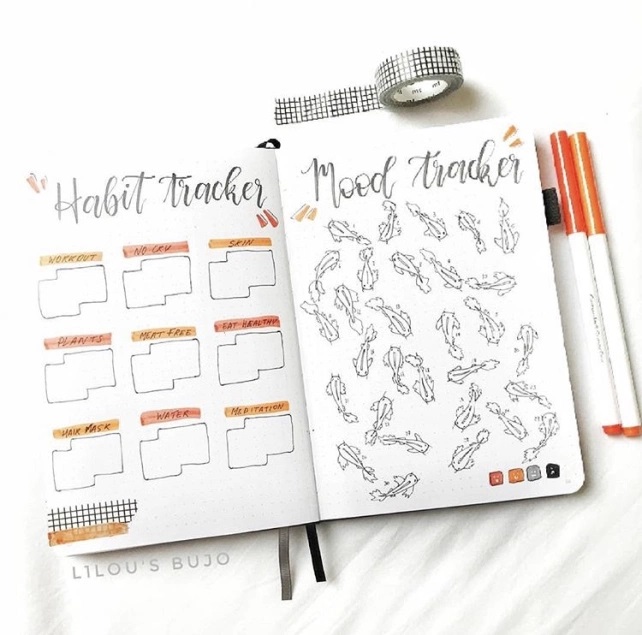 Habit tracker
WORKOUT
NO CRY
SKIN
PLANTS
MEAT FREE
EAT HEALTHY
HAIR MASK
WATER
MEDITATION
Mood tracker
mt
L1LOU'S BUJO